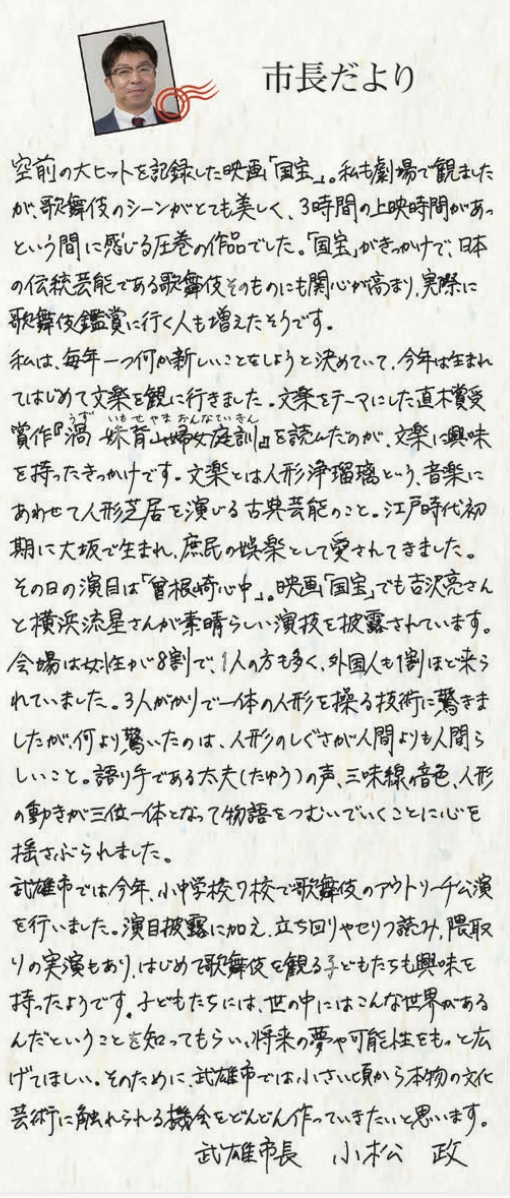 市長だより
空前の大ヒットを記録した映画「国宝」。私も劇場で観ました
が、歌舞伎のシーンがとても美しく、3時間の上映時間があっ
という間に感じる圧巻の作品でした。「国宝」がきっかけで、日本
の伝統芸能である歌舞伎そのものにも関心が高まり、実際に
歌舞伎鑑賞に行く人も増えたそうです。
私は、毎年一つ何か新しいことをしようと決めていて、今年は生まれ
てはじめて文楽を観に行きました。文楽をテーマにした直木賞受
うず いもせやま おんなていきん
賞作『渦 妹背山婦女庭訓』を読んだのが、文楽に興味
を持ったきっかけです。文楽とは人形浄瑠璃という、音楽に
あわせて人形芝居を演じる古典芸能のこと。江戸時代初
期に大坂で生まれ、庶民の娯楽として愛されてきました。
その日の演目は「曽根崎心中」。映画「国宝」でも吉沢亮さん
と横浜流星さんが素晴らしい演技を披露されています。
会場は女性が8割で、1人の方も多く、外国人も1割ほど来ら
れていました。3人がかりで一体の人形を操る技術に驚きま
したが、何より驚いたのは、人形のしぐさが人間よりも人間ら
しいこと。語り手である太夫(たゆう)の声、三味線の音色、人形
の動きが三位一体となって物語をつむいでいくことに心を
揺さぶられました。
武雄市では今年、小中学校7校で歌舞伎のアウトリーチ公演
を行いました。演目披露に加え、立ち回りやセリフ読み、隈取
りの実演もあり、はじめて歌舞伎を観る子どもたちも興味を
持ったようです。子どもたちには、世の中にはこんな世界がある
んだということを知ってもらい、将来の夢や可能性をもっと広
げてほしい。そのために、武雄市では小さい頃から本物の文化
芸術に触れられる機会をどんどん作っていきたいと思います。
武雄市長 小松 政